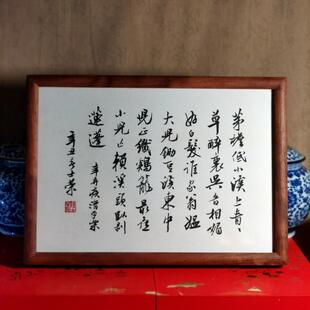 茅檐低小溪上青々
草醉裏吴音相媚
好白髮谁家翁媪
大兒鋤豆溪東中
兒正織鷄籠最喜
小兒亡賴溪頭臥剥
蓮蓬
辛弃疾清平樂
辛丑冬士荣